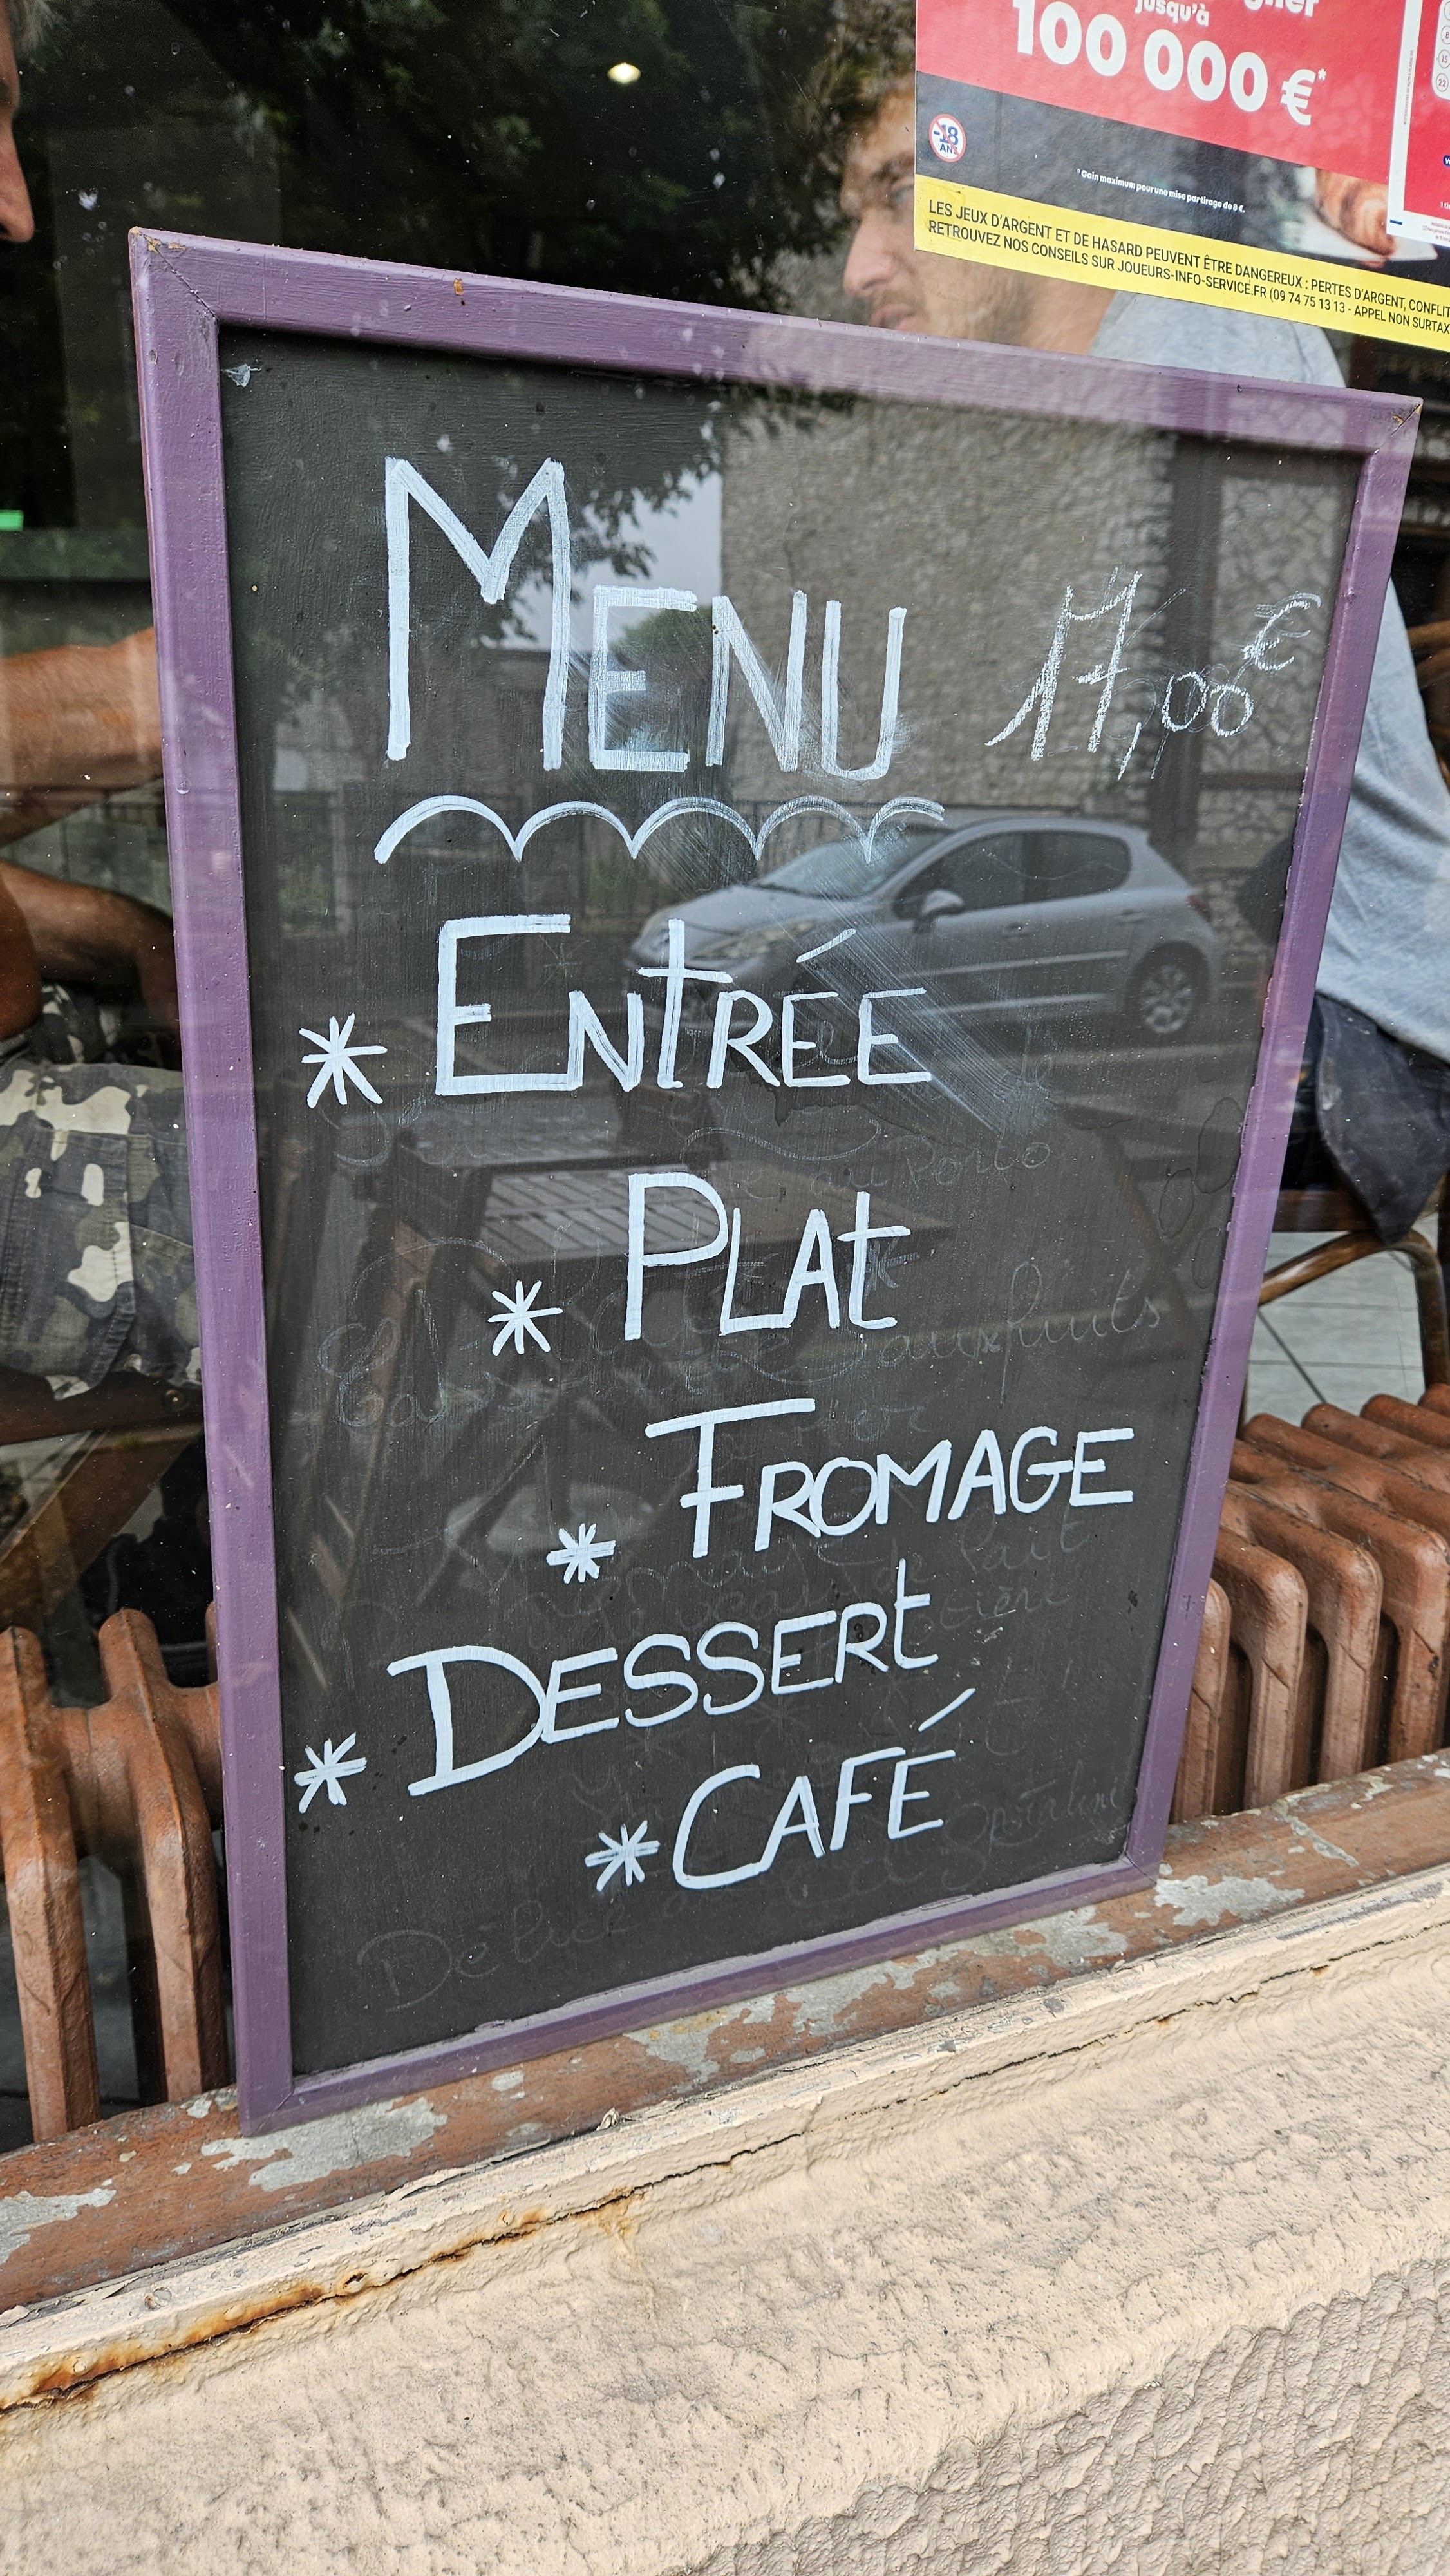 jusqu'à
100 000 €*
-18
ANS
* Gain maximum pour une mise par tirage de 8 €.
LES JEUX D'ARGENT ET DE HASARD PEUVENT ÊTRE DANGEREUX : PERTES D'ARGENT, CONFLIT
RETROUVEZ NOS CONSEILS SUR JOUEURS-INFO-SERVICE.FR (09 74 75 13 13 - APPEL NON SURTAX
MENU 17,00€
* ENTRÉE
* PLAT
* FROMAGE
* DESSERT
* CAFÉ